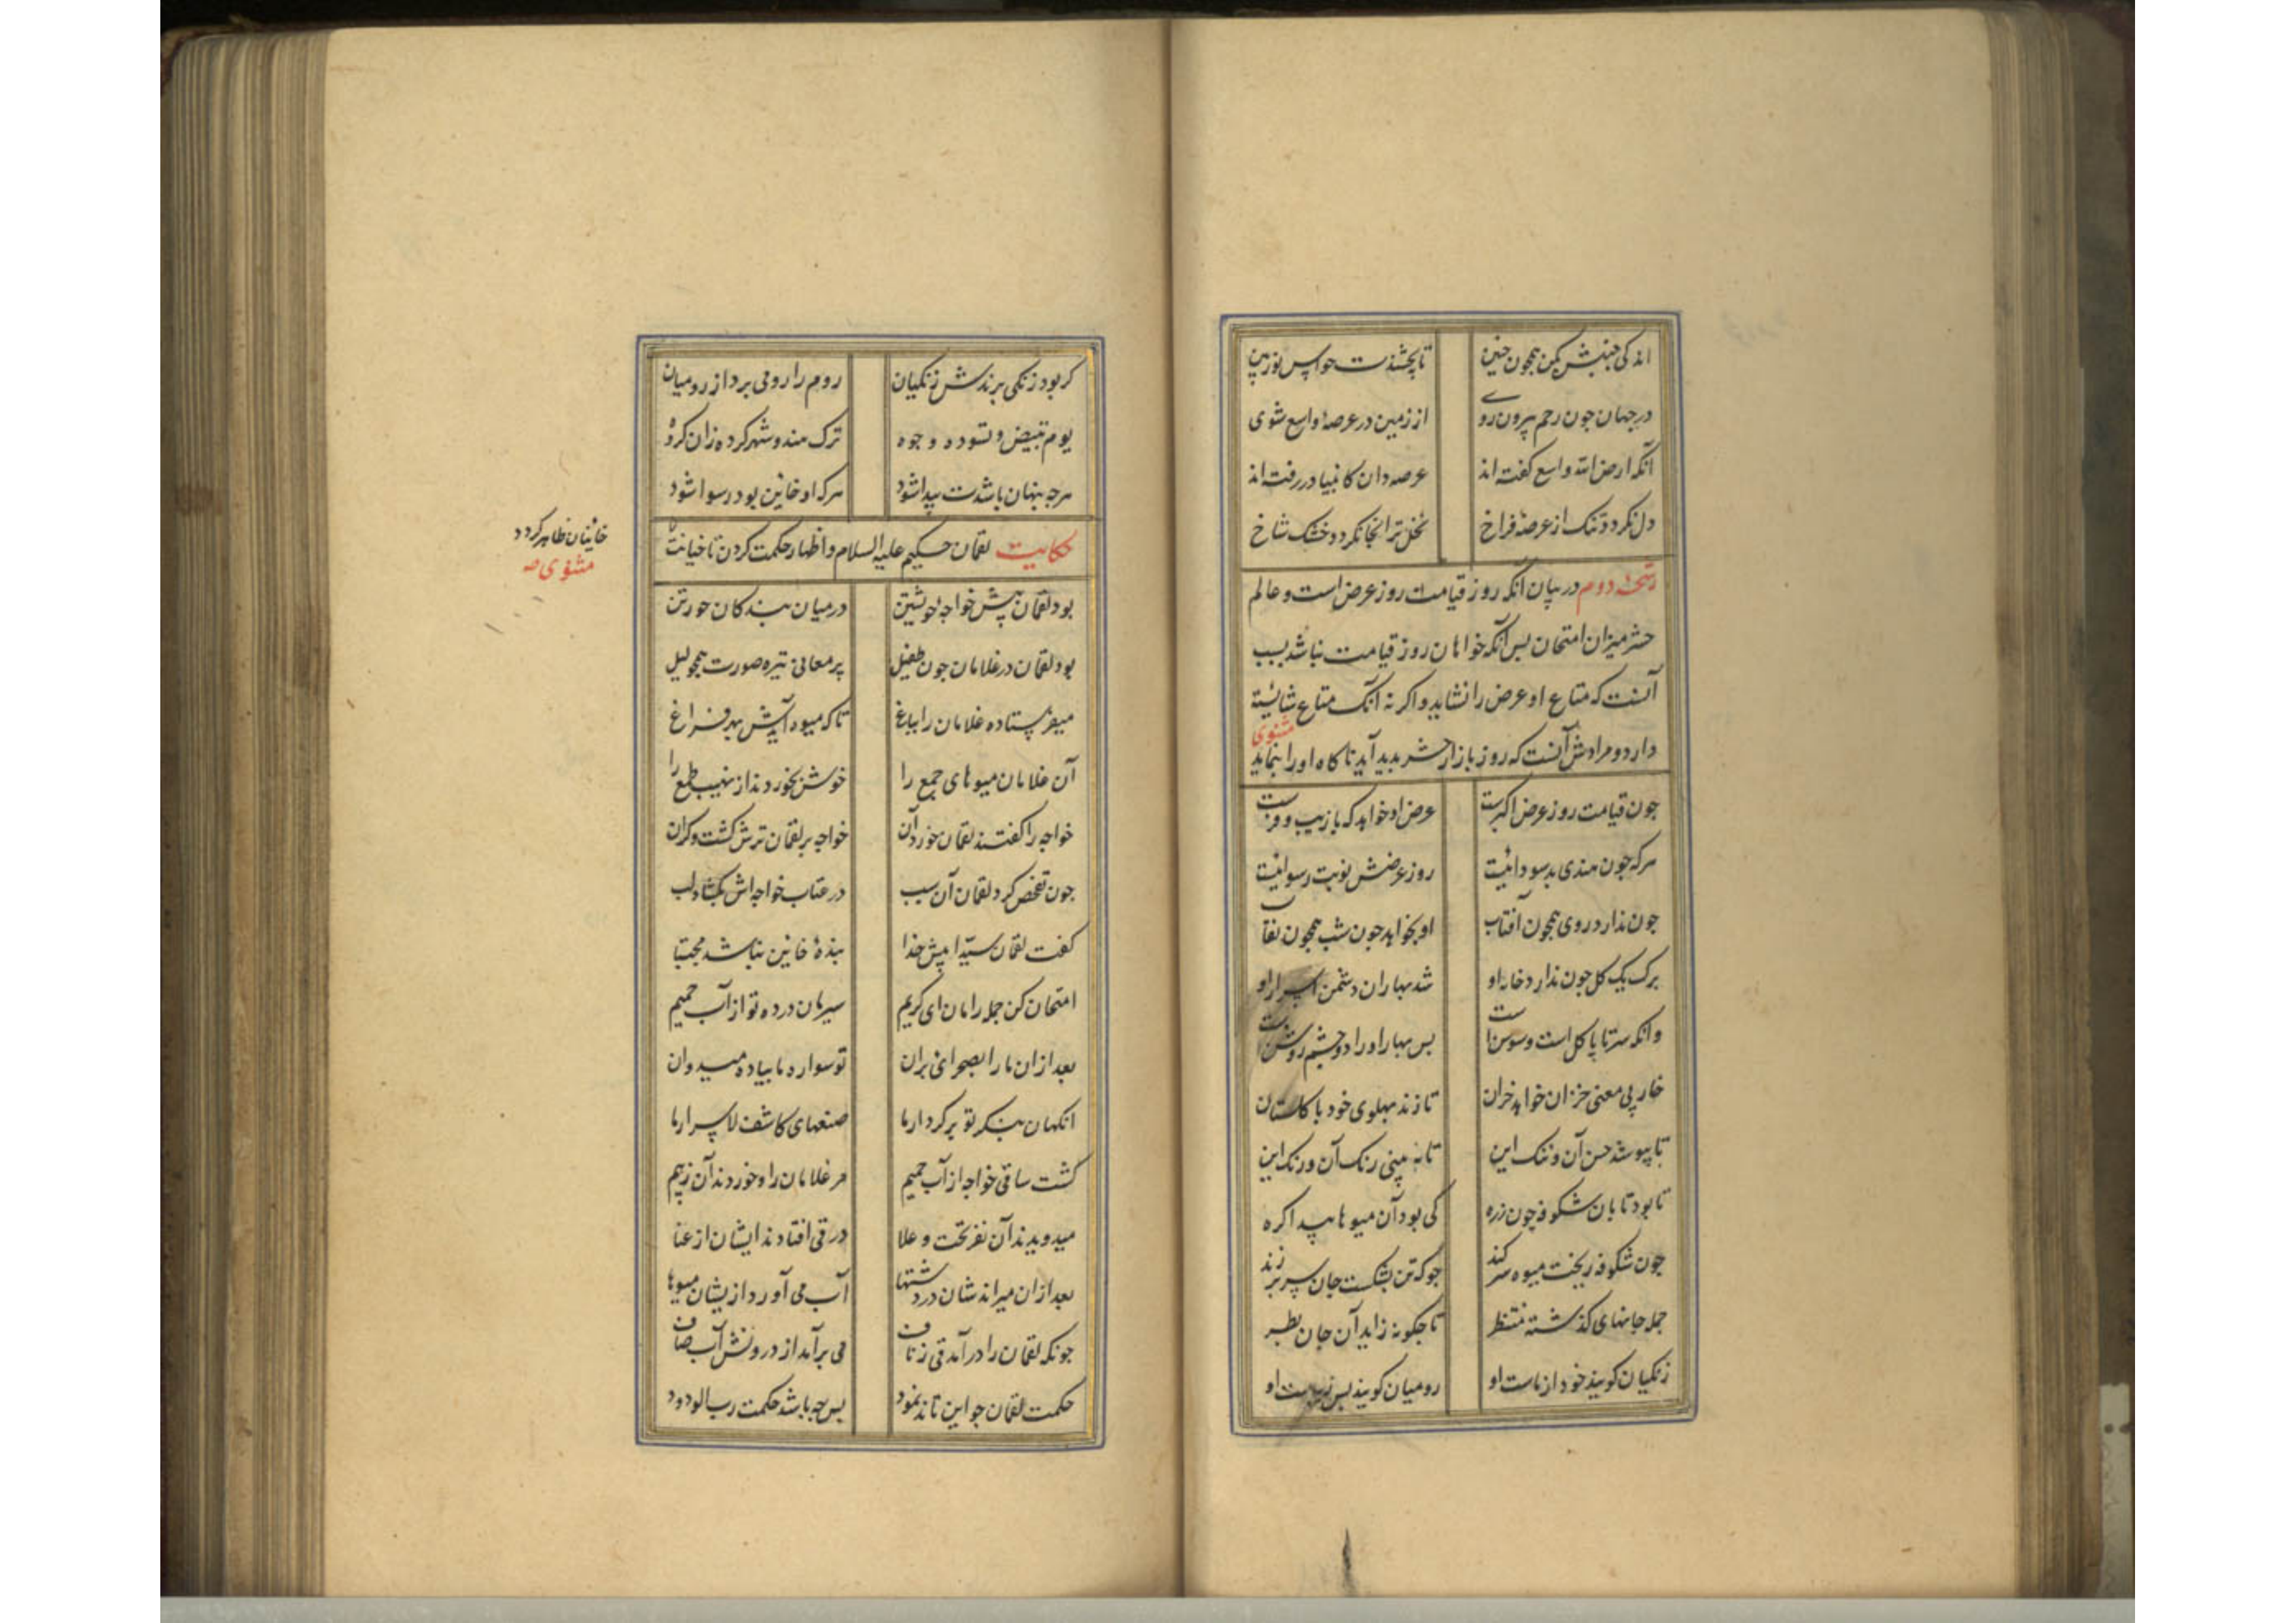 اندکی جنبش بکن همچون جنین تا بخشندت حواس نوربین
در جهان چون رحم بیرون روی از زمین در عرصهٔ واسع شوی
آنکه ارض الله واسع گفته‌اند عرصه دان کانبیا در رفته‌اند
دل نکردد تنک از عرصهٔ فراخ نخل تر انجا نکردد خشک شاخ
رشحهٔ دوم در بیان آنکه روز قیامت روز عرض است و عالم
حشر میزان امتحان پس آنکه خواهان روز قیامت نباشد بسبب
آنست که متاع او عرض را نشاید و اکر نه آنک متاع شائسته
دارد و مرادش آنست که روز بازار حشر پدید آید تا کاه او را بنماید مثنوی
جون قیامت روز عرض اکبرست عرض او خواهد که با زیب و فرست
هرکه جون هندی بد سودائیست روز عرضش نوبت رسوائیست
جون ندارد روی همجون آفتاب او نخواهد جون شب همجون نقاب
برک یک کل جون ندارد خار او شد بهاران دشمن اسرار او
وانکه سر تا پا کل است و سوسن است پس بهار او را دو چشم روشن است
خار بی معنی خزان خواهد خزان تا زند پهلوی خود با کلستان
تا بپوشد حسن آن و ننک این تا نه بینی رنک آن و رنک این
تا بود تابان شکوفه چون زره کی بود آن میوها پیدا کره
جون شکوفه ریخت میوه سر کند جونکه تن بشکست جان سر بر زند
جمله جانهای کذشته منتظر تا جکونه زاید آن جان بطر
زنکیان کویند خود از ماست او رومیان کویند بس زیباست او
کر بود زنکی برندش زنکیان روم را رومی برد از رومیان
یوم تبیض و تسود وجوه ترک هندو شهر کرده زان کروه
هرجه پنهان باشدت پیدا شود هرکه او خائن بود رسوا شود
حکایت لقمان حکیم علیه السلام و اظهار حکمت کردن تا خیانت
خائنان ظاهر کردد
مثنوی
بود لقمان پیش خواجهٔ خویشتن در میان بندکان خورتن
بود لقمان در غلامان جون طفیل پر معانی تیره صورت همجو لیل
میفرستاد او غلامان را بباغ تا که میوه آیدش بهر فراغ
آن غلامان میوهای جمع را خوش بخوردند از نهیب طمع را
خواجه را کفتند لقمان خورد آن خواجه بر لقمان ترش کشت و کران
جون تفحص کرد لقمان آن سبب در عتاب خواجه‌اش بکشاد لب
کفت لقمان سیدا پیش خدا بندهٔ خائن نباشد مجتبا
امتحان کن جمله را مان ای کریم سیرمان در ده تو از آب حمیم
بعد ازان ما را بصحرائی بران تو سواره ما پیاده میدوان
انکهان بنکر تو بر کردار ما صنعهای کاشف الاسرار ما
کشت ساقی خواجه از آب حمیم مر غلامان را و خوردند آن ز بیم
میدویدند آن نفر تحت و علا در قی افتادند ایشان از عنا
بعد ازان میراندشان در دشتها آب می آورد ازیشان میوها
جونکه لقمان را در آمد قی ز ناف می برآمد از درونش آب صاف
حکمت لقمان جو این تاند نمود پس جه باشد حکمت رب الودود